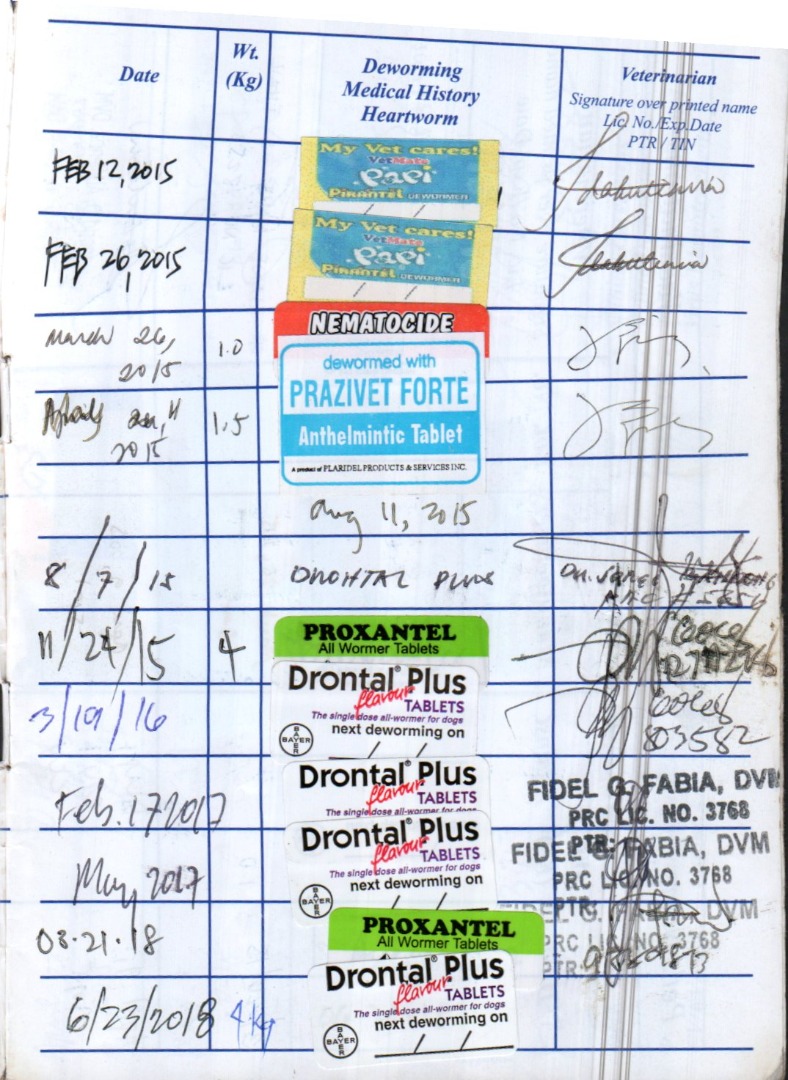 Date
Wt.
(Kg)
Deworming
Medical History
Heartworm
Veterinarian
Signature over printed name
Lic. No./Exp.Date
PTR / TIN
FEB 12, 2015
My Vet cares!
VetMate
Papi
PIRANTEL DEWORMER
FEB 26, 2015
My Vet cares!
VetMate
Papi
PIRANTEL DEWORMER
March 26,
2015
1.0
NEMATOCIDE
dewormed with
PRAZIVET FORTE
Anthelmintic Tablet
A product of PLARIDEL PRODUCTS & SERVICES INC.
2015
1.5
Aug 11, 2015
8/7/15
DRONTAL PLUS
11/24/15
4
PROXANTEL
All Wormer Tablets
3/19/16
Drontal® Plus
flavour
TABLETS
The single dose all-wormer for dogs
next deworming on
BAYER
803582
Feb. 17 2017
Drontal® Plus
flavour
TABLETS
The single dose all-wormer for dogs
FIDEL G. FABIA, DVM
PRC LIC. NO. 3768
PTR:
May 2017
Drontal® Plus
flavour
TABLETS
The single dose all-wormer for dogs
next deworming on
BAYER
FIDEL G. FABIA, DVM
PRC LIC. NO. 3768
PTR:
03.21.18
PROXANTEL
All Wormer Tablets
FIDEL G. FABIA, DVM
PRC LIC. NO. 3768
PTR:
6/23/2018
4 kg
Drontal® Plus
flavour
TABLETS
The single dose all-wormer for dogs
next deworming on
BAYER